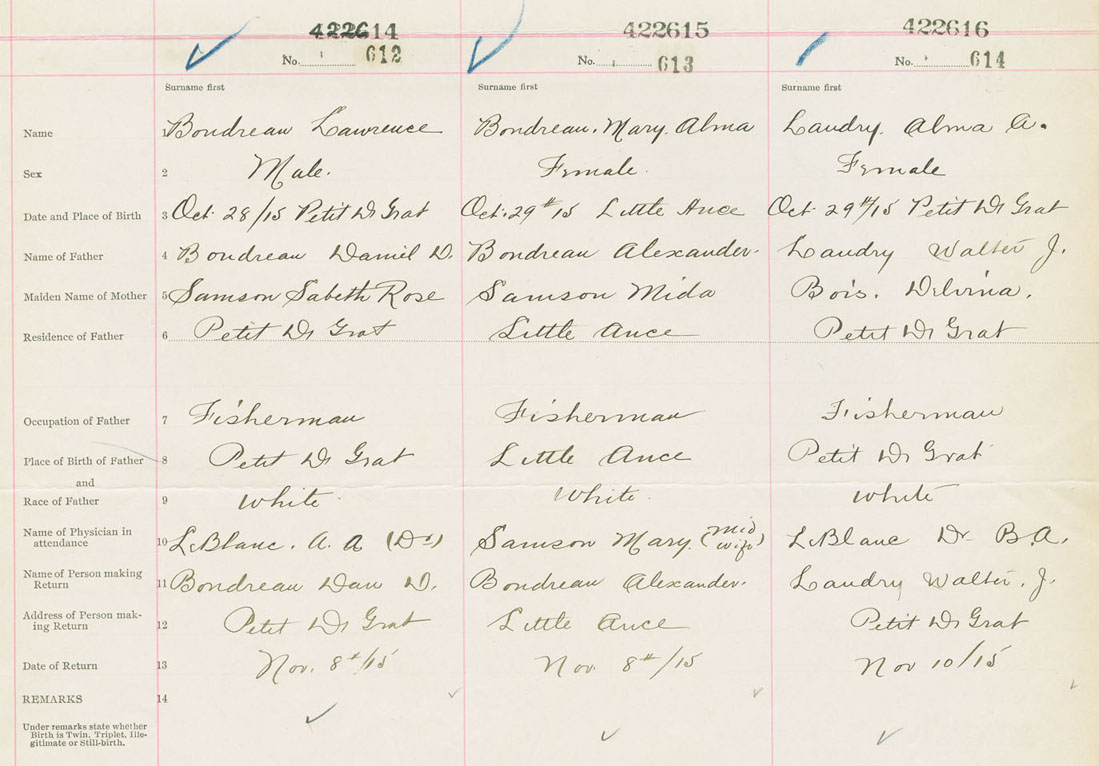 422614 422615 422616
No. 612 No. 613 No. 614
Surname first Surname first Surname first
Name 1 Bondreau Lawrence Bondreau. Mary. Alma Landry. Alma A.
Sex 2 Male. Female. Female
Date and Place of Birth 3 Oct 28/15 Petit De Grat Oct. 29th 15 Little Ance Oct 29th/15 Petit De Grat
Name of Father 4 Bondreau Daniel D. Bondreau Alexander. Landry Walter J.
Maiden Name of Mother 5 Samson Sabeth Rose Samson Mida Bois. Delvina.
Residence of Father 6 Petit De Grat Little Ance Petit De Grat
Occupation of Father 7 Fisherman Fisherman Fisherman
Place of Birth of Father 8 Petit De Grat Little Ance Petit De Grat
and
Race of Father 9 White White. White
Name of Physician in
attendance 10 LeBlanc. A. A (Dr) Samson Mary. (Mid wife) LeBlanc Dr B.A.
Name of Person making
Return 11 Bondreau Dan D. Bondreau Alexander. Landry Walter. J.
Address of Person mak-
ing Return 12 Petit De Grat Little Ance Petit De Grat
Date of Return 13 Nov. 8th/15 Nov 8th/15 Nov 10/15
REMARKS 14
Under remarks state whether
Birth is Twin, Triplet, Ille-
gitimate or Still-birth.